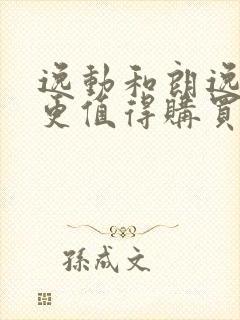 逸動和朗逸
更值得購買
孫成文